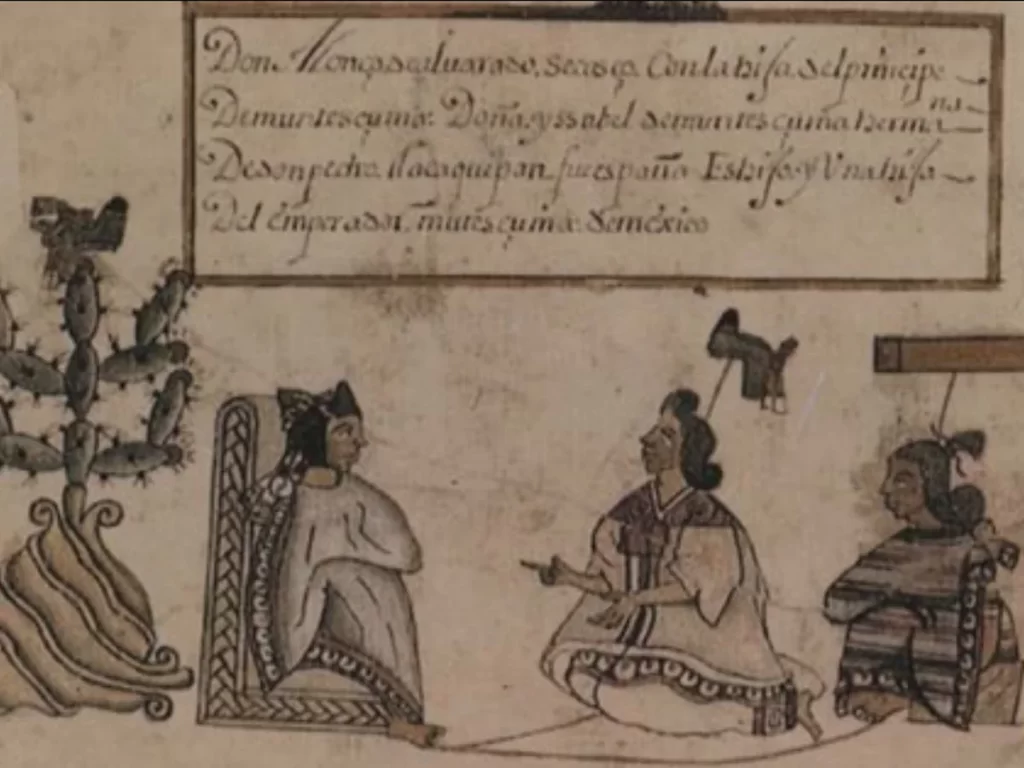 Don Alonço de aluarado. se casa Con la hija del principe
Demuntesçuma: Doña yssabel demuntesçuma herma na
De don pedro tlacaquipan fuespaña Eshija y Vna hija
Del emperador mutesçuma demexico